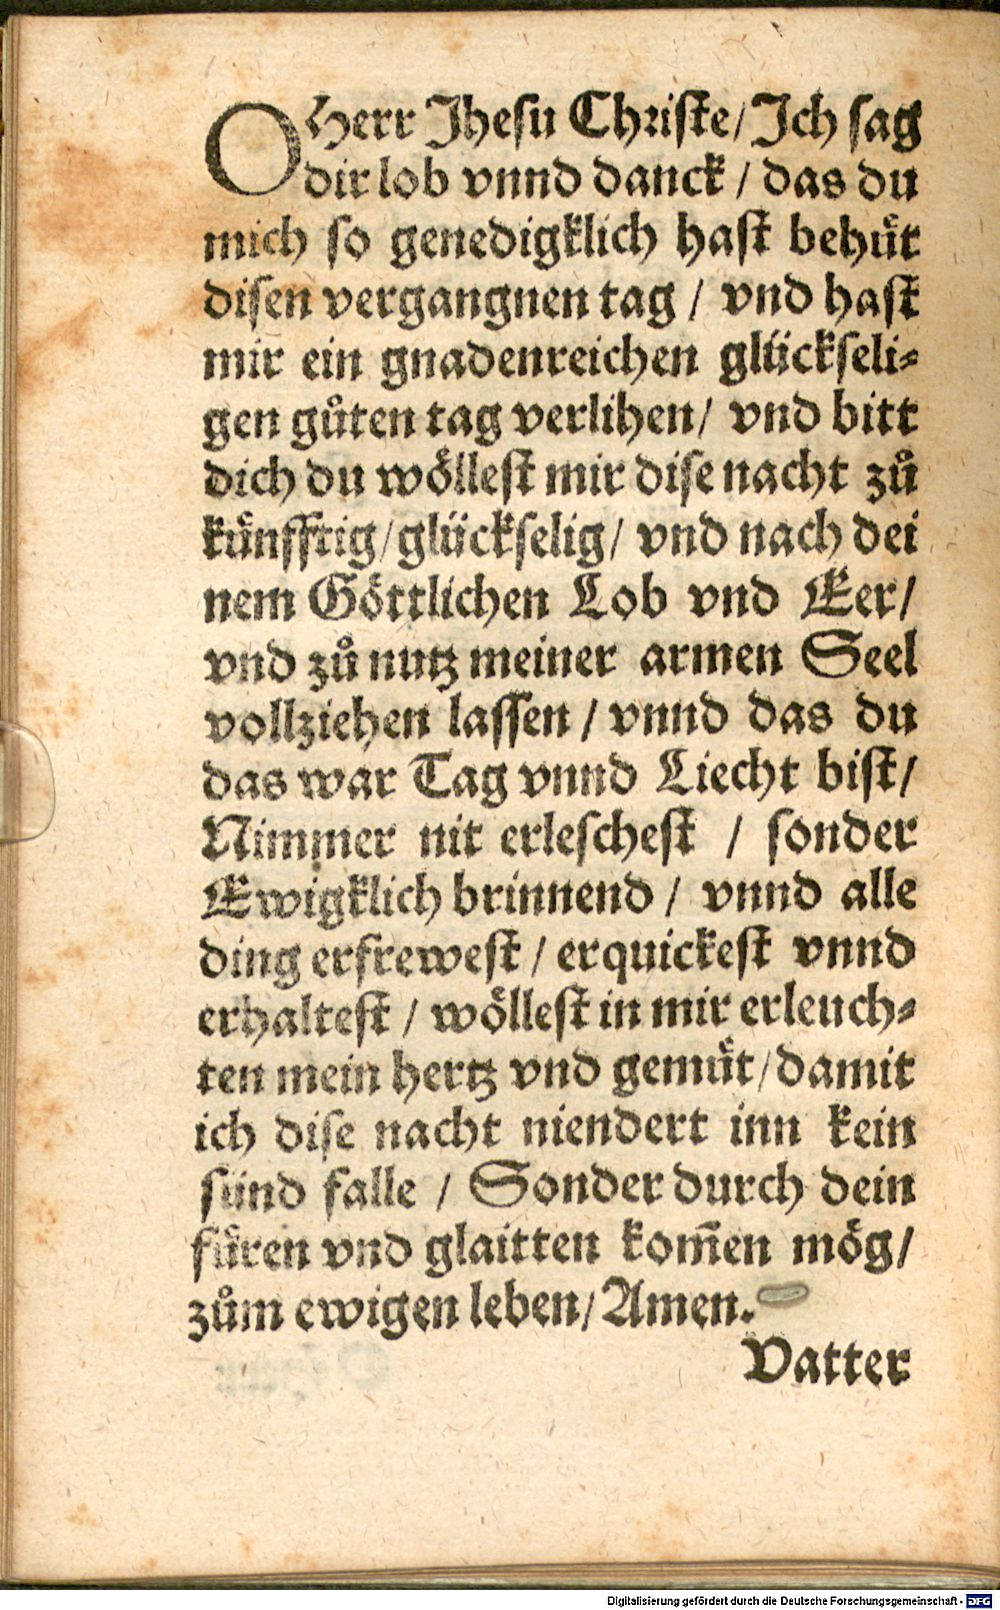 O Herr Jhesu Christe/ Jch sag
dir lob vnnd danck / das du
mich so genedigklich hast behuͤt
disen vergangnen tag / vnd hast
mir ein gnadenreichen glückseli-
gen guͦten tag verlihen/ vnd bitt
dich du woͤllest mir dise nacht zuͦ
kuͤnfftig/ glückselig/ vnd nach dei
nem Goͤttlichen Lob vnd Eer/
vnd zuͦ nutz meiner armen Seel
vollziehen lassen / vnnd das du
das war Tag vnnd Liecht bist/
Nimmer nit erleschest / sonder
Ewigklich brinnend / vnnd alle
ding erfrewest / erquickest vnnd
erhaltest / woͤllest in mir erleuch-
ten mein hertz vnd gemuͤt/ damit
ich dise nacht niendert inn kein
sünd falle / Sonder durch dein
fuͤren vnd glaitten kom̄en moͤg/
zuͦm ewigen leben/ Amen.
Vatter
Digitalisierung gefördert durch die Deutsche Forschungsgemeinschaft - DFG